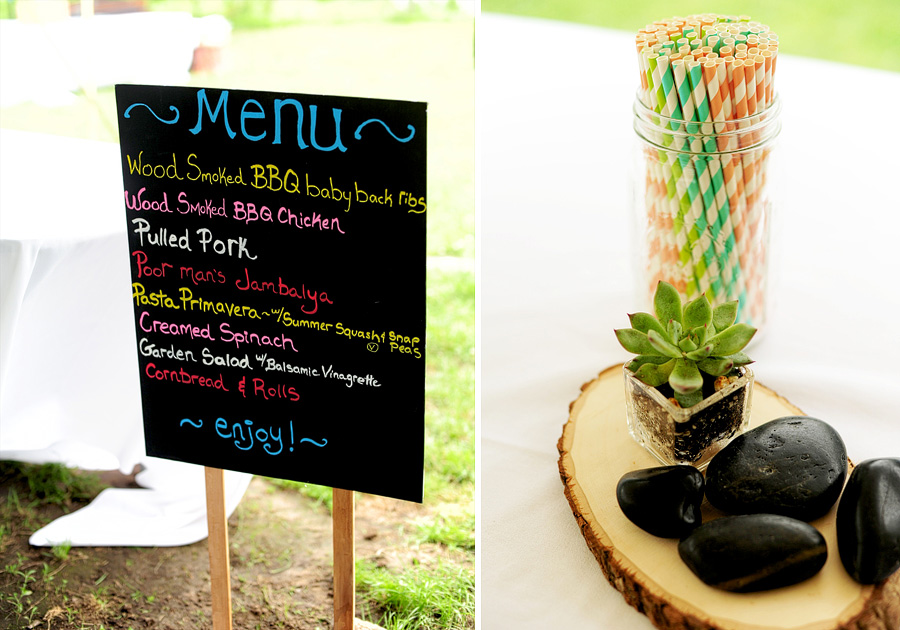 ~ Menu ~
Wood Smoked BBQ baby back ribs
Wood Smoked BBQ Chicken
Pulled Pork
Poor man's Jambalya
Pasta Primavera ~ w/ Summer Squash & Snap
Ⓥ Peas
Creamed Spinach
Garden Salad w/ Balsamic Vinagrette
Cornbread & Rolls
~ enjoy! ~